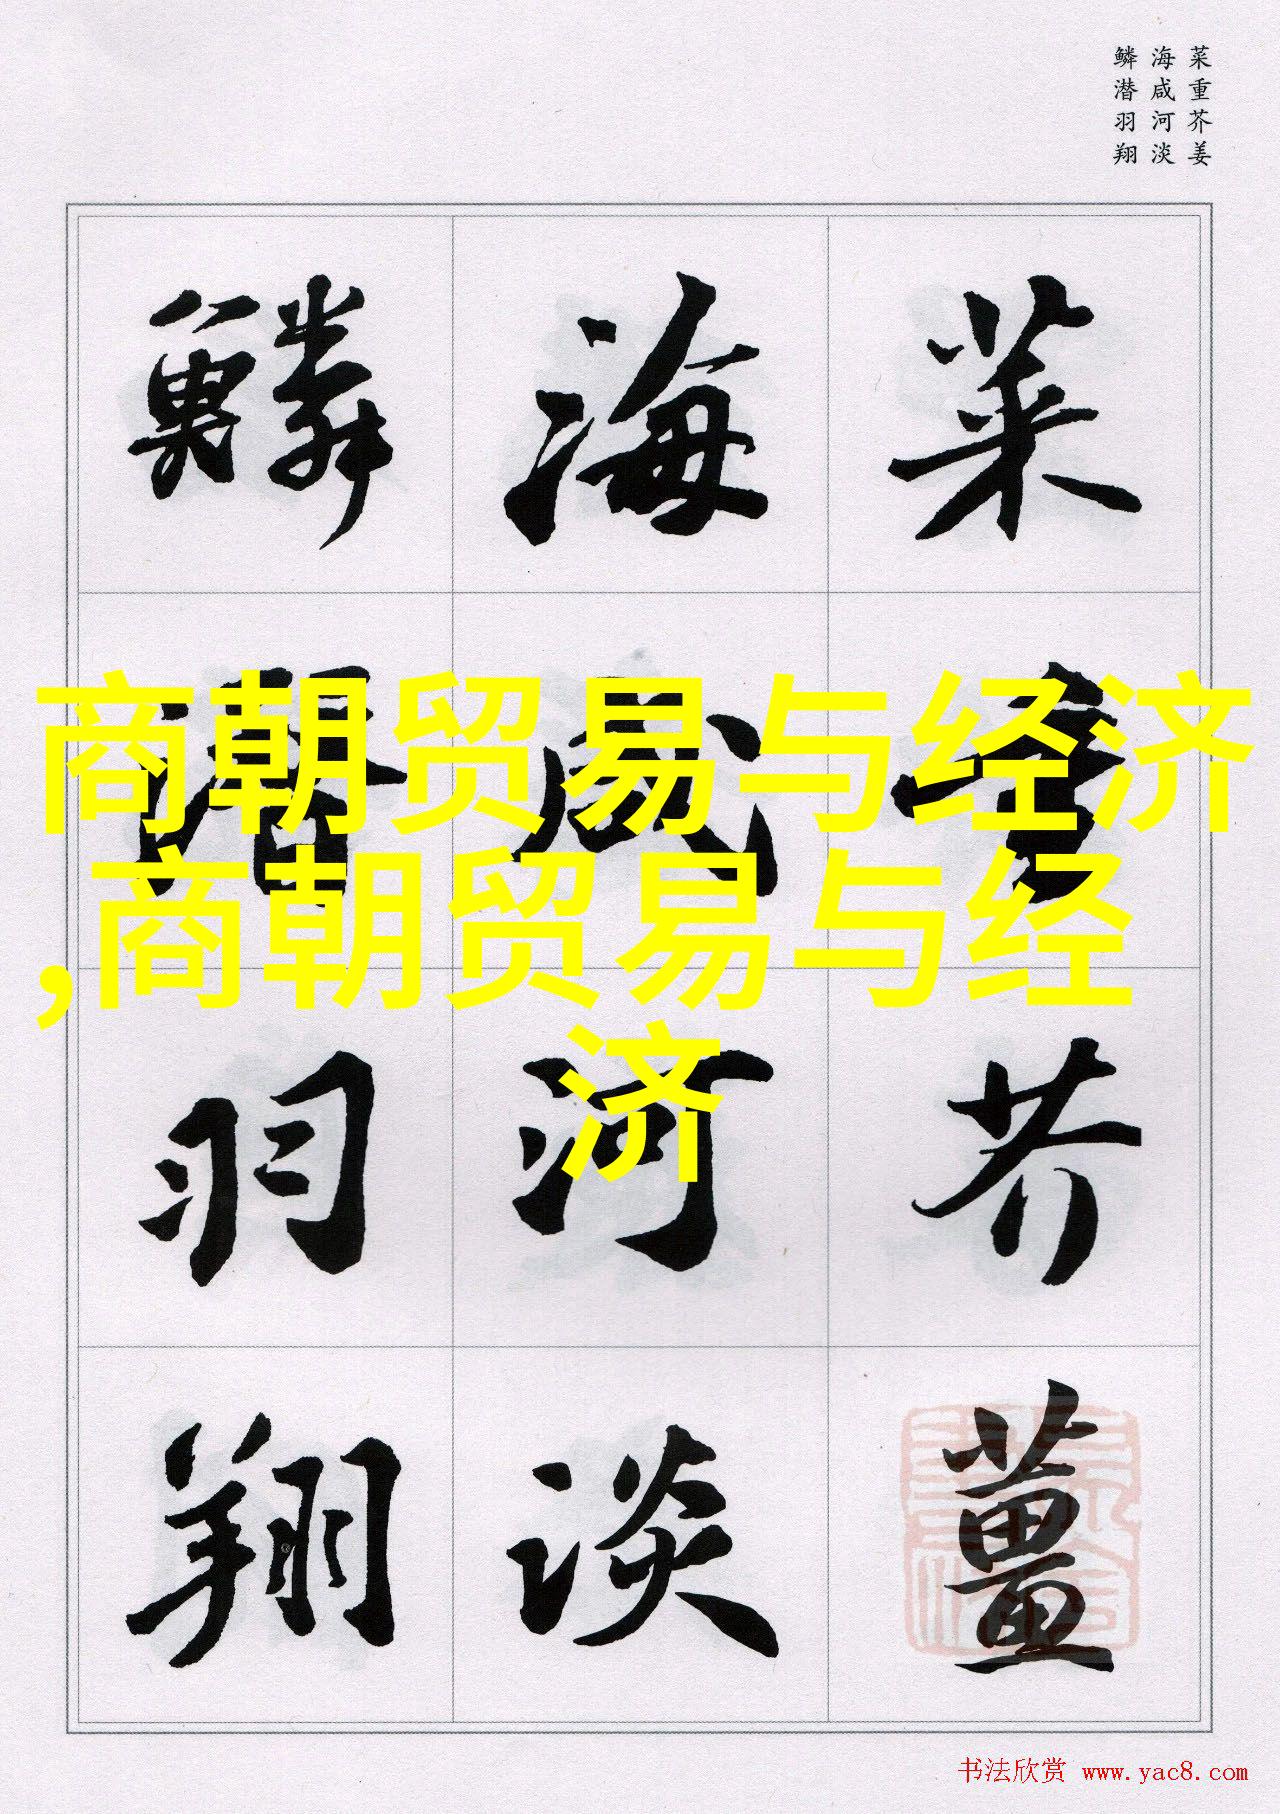 菜重芥姜
海咸河淡
鳞潜羽翔
菜重芥薑
海咸河淡
鳞潜羽翔
商朝贸易与经济
,商朝贸易与经
济
书法欣赏 www.yac8.com